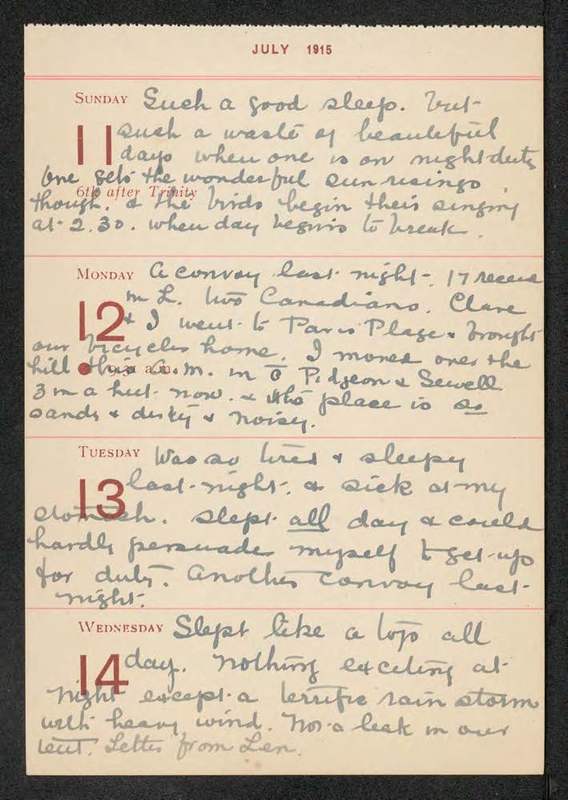 JULY 1915
SUNDAY Such a good sleep. but
11 such a waste of beautiful
days when one is on night duty
One gets the wonderful sun risings
6th after Trinity
though. & the birds begin their singing
at 2.30. when day begins to break.
MONDAY A convoy last night. 17 received
12 in L. two Canadians. Clare
& I went to Paris Plage & brought
our bicycles home. I moved over the
hill this a.m. in c̄ Pidgeon & Sewell
3 in a hut now. & the place is so
sandy & dusty & noisy.
TUESDAY Was so tired & sleepy
13 last night. & sick at my
stomach. Slept all day & could
hardly persuade myself to get up
for duty. Another convoy last
night.
WEDNESDAY Slept like a top all
14 day. Nothing exciting at
night except a terrific rain storm
with heavy wind. Not a leak in our
tent. Letter from Len.